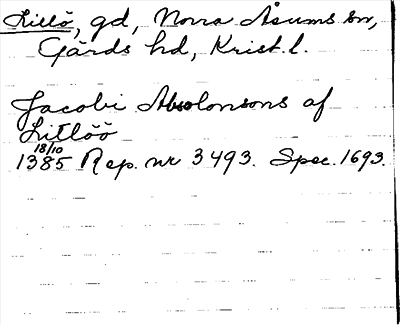 Lillö, gd, Norra Åsums sn,
Gärds hd, Krist. l.
Jacobi Absolonsons af
Litlöö
18/10
1385 Rep. nr 3493. Spec. 1693.